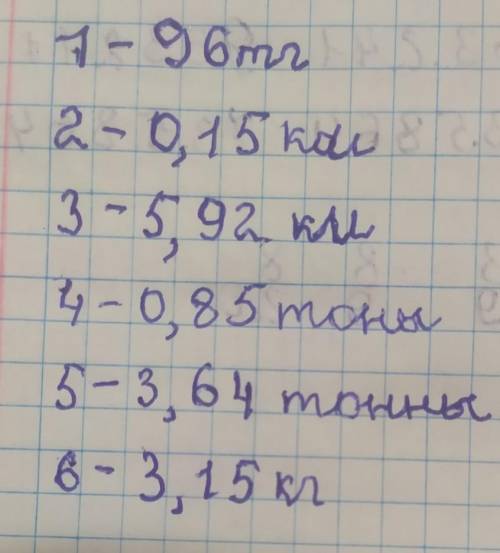 1 - 96тг
2 - 0,15 км
3 - 5,92 км
4 - 0,85 тоны
5 - 3,64 тонны
6 - 3,15 кг